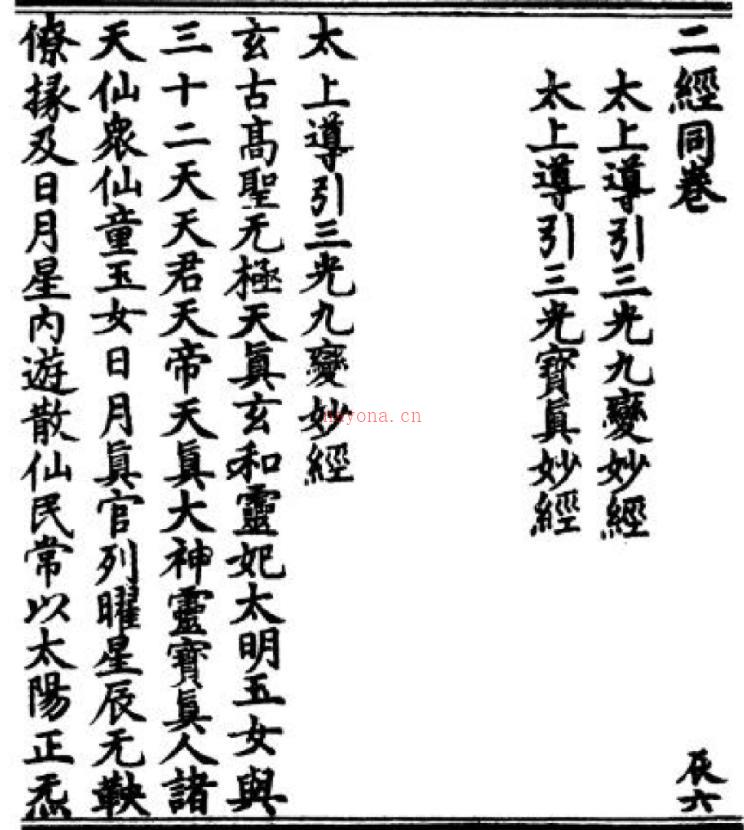 二經同卷
辰六
太上導引三光九變妙經
太上導引三光寶眞妙經
太上導引三光九變妙經
玄古髙聖无極天眞玄和靈妃太明五女與
三十二天天君天帝天眞大神靈寶眞人諸
天仙衆仙童玉女日月眞官列曜星辰无鞅
僚掾及日月星內遊散仙民常以太陽正炁
nayona.cn